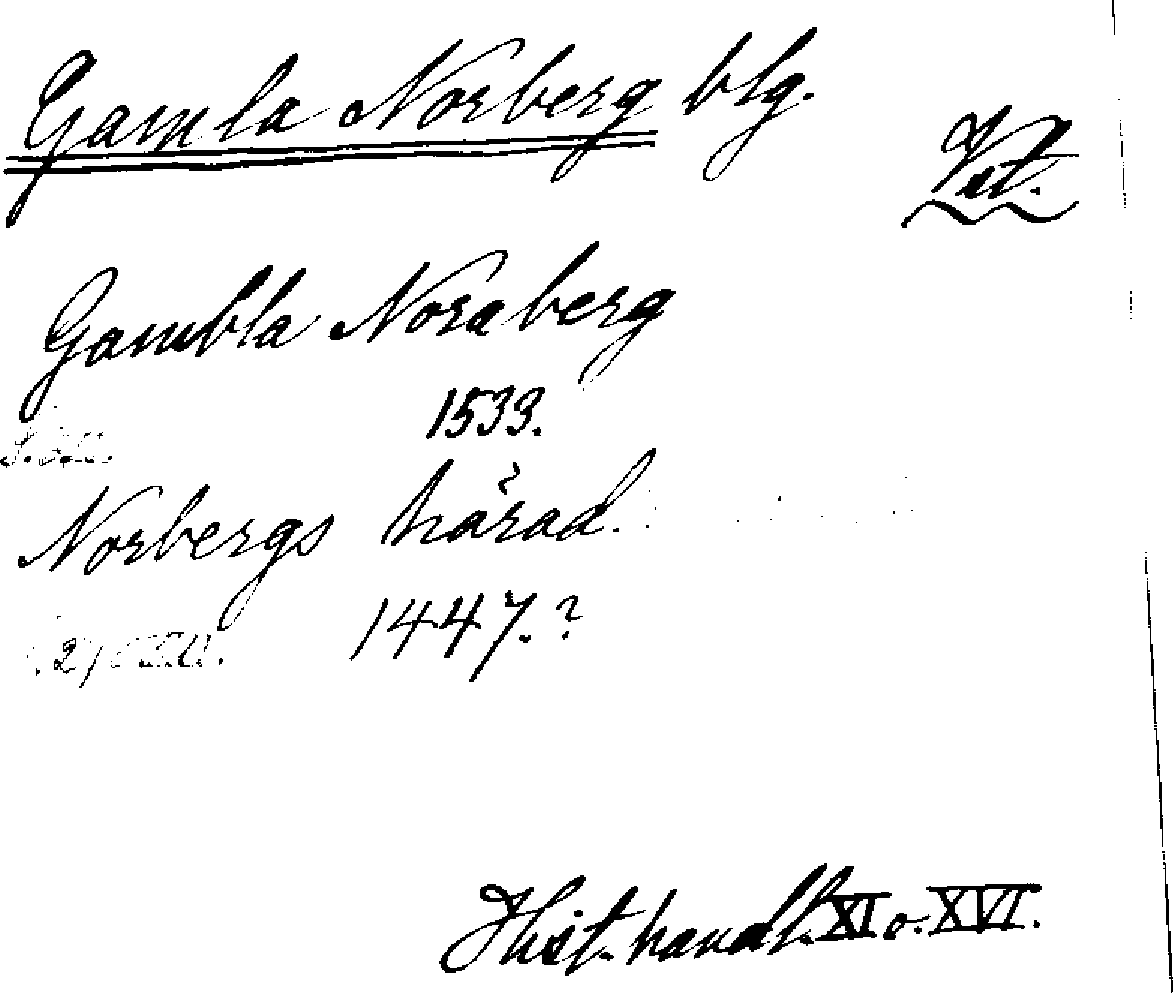 Gamla Norberg blg.
Vst.
Gambla Noraberg
1533.
Norbergs härad.
1447.?
Hist. handl. XI o. XVI.